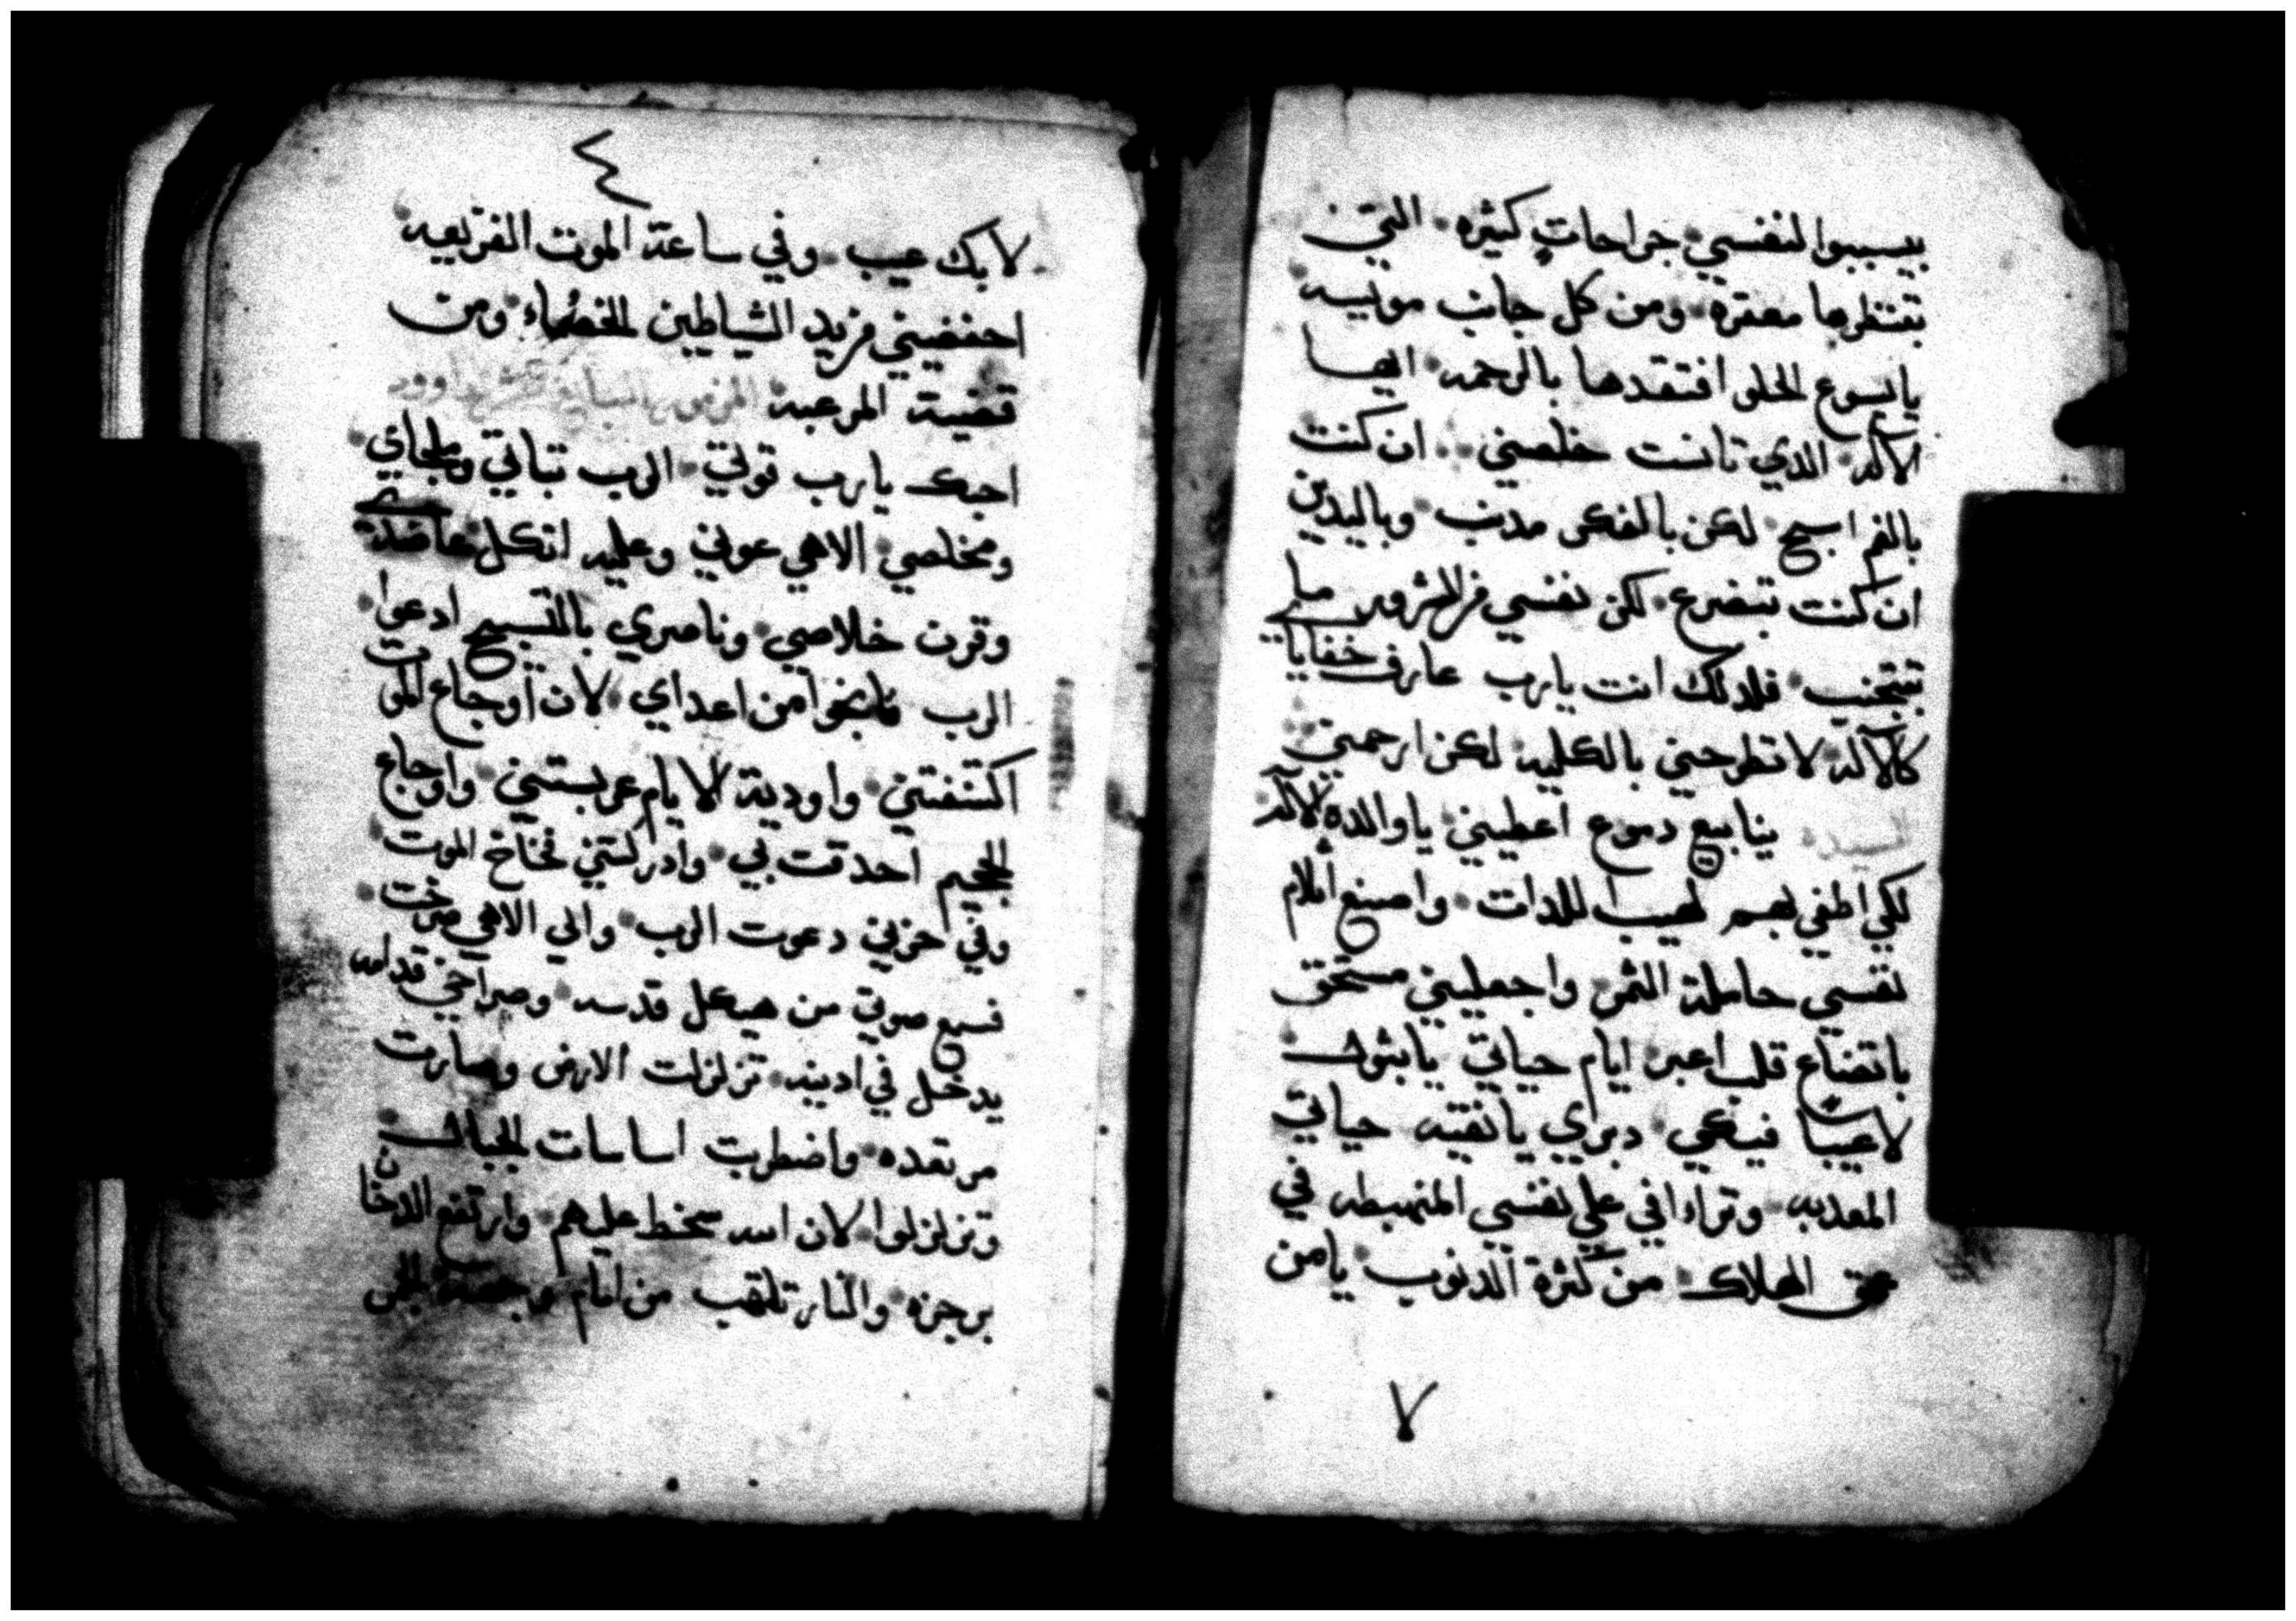 بيسببوا لنفسي جراحاتٍ كثيره التي
تنتظرها معقره ومن كل جانب مويسه
يايسوع الحلو افتقدها بالرحمه ايها
الاله الدي تانست خلصني ان كنت
بالفم اسبح لكن بالفكر مدنب وباليدين
ان كنت بتضرع لكن نفسي من الشرور ما
تتجنب فلدلك انت يارب عارف خفايا
كالاله لا تطرحني بالكليه لكن ارحمني
السيده ينابيع دموع اعطيني يا والدة الاله
لكي اطفي بهم لهيب اللدات واصنع اتلام
نفسي حاملة الثمر واجعليني مستحق
باتضاع قلب اعبر ايام حياتي يابتول
لا عيبا فيكي دبري يا نقيه حياتي
المعدبه وتراافي على نفسي المنهبطه في
عمق الهلاك من كثرة الدنوب يامن
٧
٤
لا بك عيب وفي ساعة الموت الفزيعه
احفضيني من يد الشياطين الخصماء ومن
قضية المرعبة المزمور السابع عشر لداوود
احبك يارب قوتي الرب تباتي وملجاي
ومخلصي الاهي عوني وعليه اتكل عاضدي
وقرن خلاصي وناصري بالتسبيح ادعوا
الرب فانجوا من اعداي لان اوجاع الموت
اكتنفتني واودية الايام عربستني واوجاع
الجحيم احدقت بي وادركتني فخاخ الموت
وفي حزني دعوت الرب والي الاهي صرخت
فسمع صوتي من هيكل قدسه وصراخي قدامه
يدخل في ادينه تزلزلت الارض وصارت
مرتعده واضطربت اساسات الجبال
وتزلزلوا لان الله سخط عليهم وارتفع الدخان
برجزه والنار تلتهب من امام وجهه